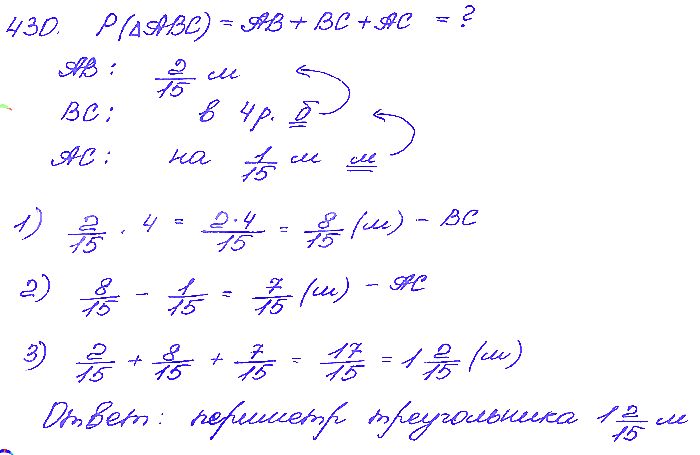 430. P(△ABC) = AB + BC + AC = ?
AB: 2/15 м
BC: в 4 р. б
AC: на 1/15 м м
1) 2/15 · 4 = 2·4/15 = 8/15 (м) - BC
2) 8/15 - 1/15 = 7/15 (м) - AC
3) 2/15 + 8/15 + 7/15 = 17/15 = 1 2/15 (м)
Ответ: периметр треугольника 1 2/15 м